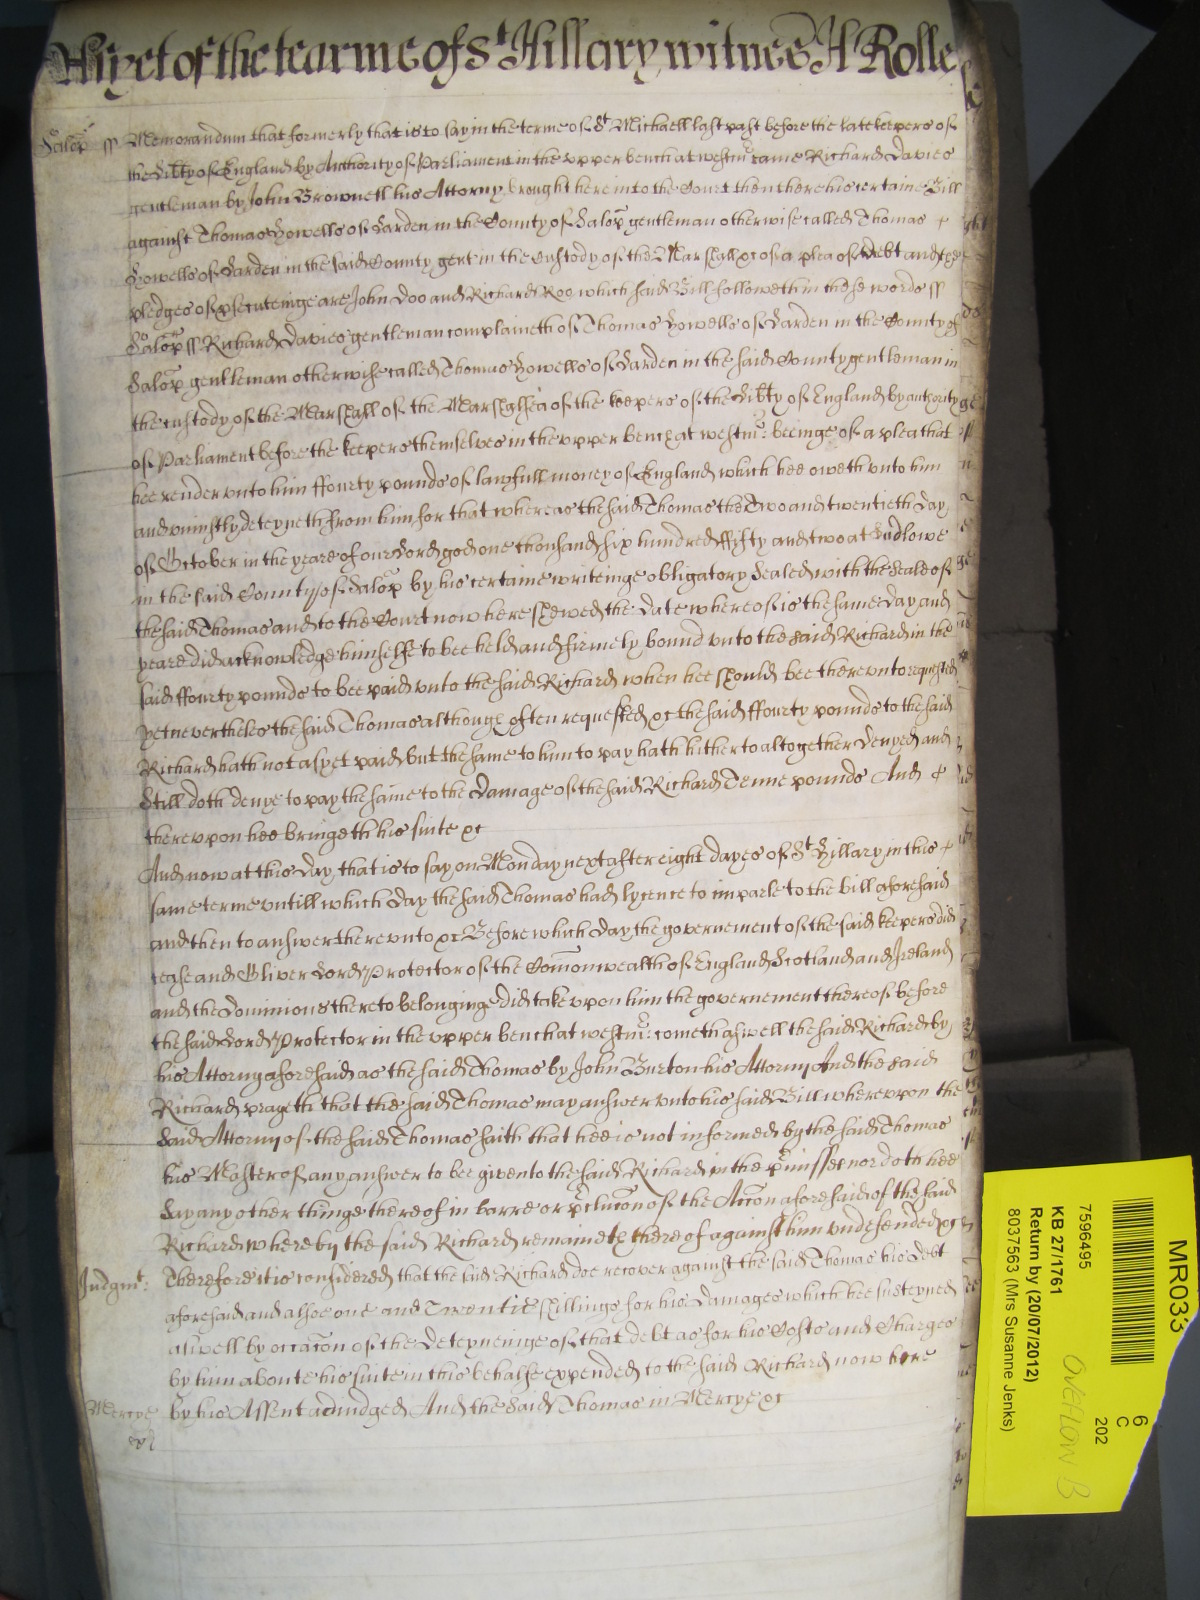 As yet of the tearme of St Hillary witnes H Rolle
Salop ss Memorandum that formerly that is to say in the terme of St Michaell last past before the late keepers of
the Libty of England by Authority of Parliament in the upper bench at westmr came Richard Davies
gentleman by John Brownell his Attorny brought here into the Court then there his certaine Bill
against Thomas Howells of Larden in the County of Salop gentleman otherwise called Thomas
Howells of Larden in the said County gent in the Custody of the Marshall xc of a plea of Debt and the
pledges of psecuteinge are John Doo and Richard Roo which said Bill followeth in these words ss
Salop ss Richard Davies gentleman complaineth of Thomas Howells of Larden in the County of
Salop gentleman otherwise called Thomas Howells of Larden in the said County gentleman in
the custody of the Marshall of the Marshalsea of the keepers of the Libty of England by authority
of Parliament before the keepers themselves in the upper bench at westmr: beeinge of a plea that
hee render unto him ffourty pounds of lawfull money of England which hee oweth unto him
and uniustly deteyneth from him for that whereas the said Thomas the Two and twentieth day
of October in the yeare of our Lord god one thousand six hundred ffifty and two at Ludlowe
in the said County of Salop by his certaine writeinge obligatory sealed with the seale of
the said Thomas and to the Court now here shewed the date whereof is the same day and
yeare did acknowledge himselfe to bee held and firmely bound unto the said Richard in the
said ffourty pounds to bee paid unto the said Richard when hee should bee thereunto requested
yet neverthelesse the said Thomas although often requested xc the said ffourty pounds to the said
Richard hath not as yet paid but the same to him to pay hath hitherto altogether denyed and
still doth denye to pay the same to the Damage of the said Richard Tenne pounds And
thereupon hee bringeth his suite xc
And now at this day that is to say on Monday next after eight dayes of St Hillary in this
same terme untill which day the said Thomas had lycence to imparle to the bill aforesaid
and then to answer thereunto xc Before which day the governement of the said keepers did
cease and Oliver Lord Protector of the Comonwealth of England Scotland and Ireland
and the Dominions thereto belonginge did take upon him the governement thereof before
the said Lord Protector in the upper bench at westmr: cometh aswell the said Richard by
his Attorny aforesaid as the said Thomas by John Burton his Attorny And the said
Richard prayeth that the said Thomas may answer unto his said Bill whereupon the
said Attorny of the said Thomas saith that hee is not informed by the said Thomas
his Master of any answer to bee given to the said Richard in the pmisses nor doth hee
say any other thinge thereof in barre or pclucon of the Accon aforesaid of the said
Richard whereby the said Richard remaineth thereof against him undefended xc
Judgmt: Therefore it is considered that the said Richard doe recover against the said Thomas his Debt
aforesaid and alsoe one and Twentie shillings for his Damages which hee susteyned
aswell by occacon of the deteyneinge of that debt as for his Costs and Charges
by him aboute his suite in this behalfe expended to the said Richard now here
Mercye by his Assent adiudged And the said Thomas in Mercye xc
MR033
6
C
202
7596495
KB 27/1761
Return by (20/07/2012)
8037563 (Mrs Susanne Jenks)
OVEFLOW B